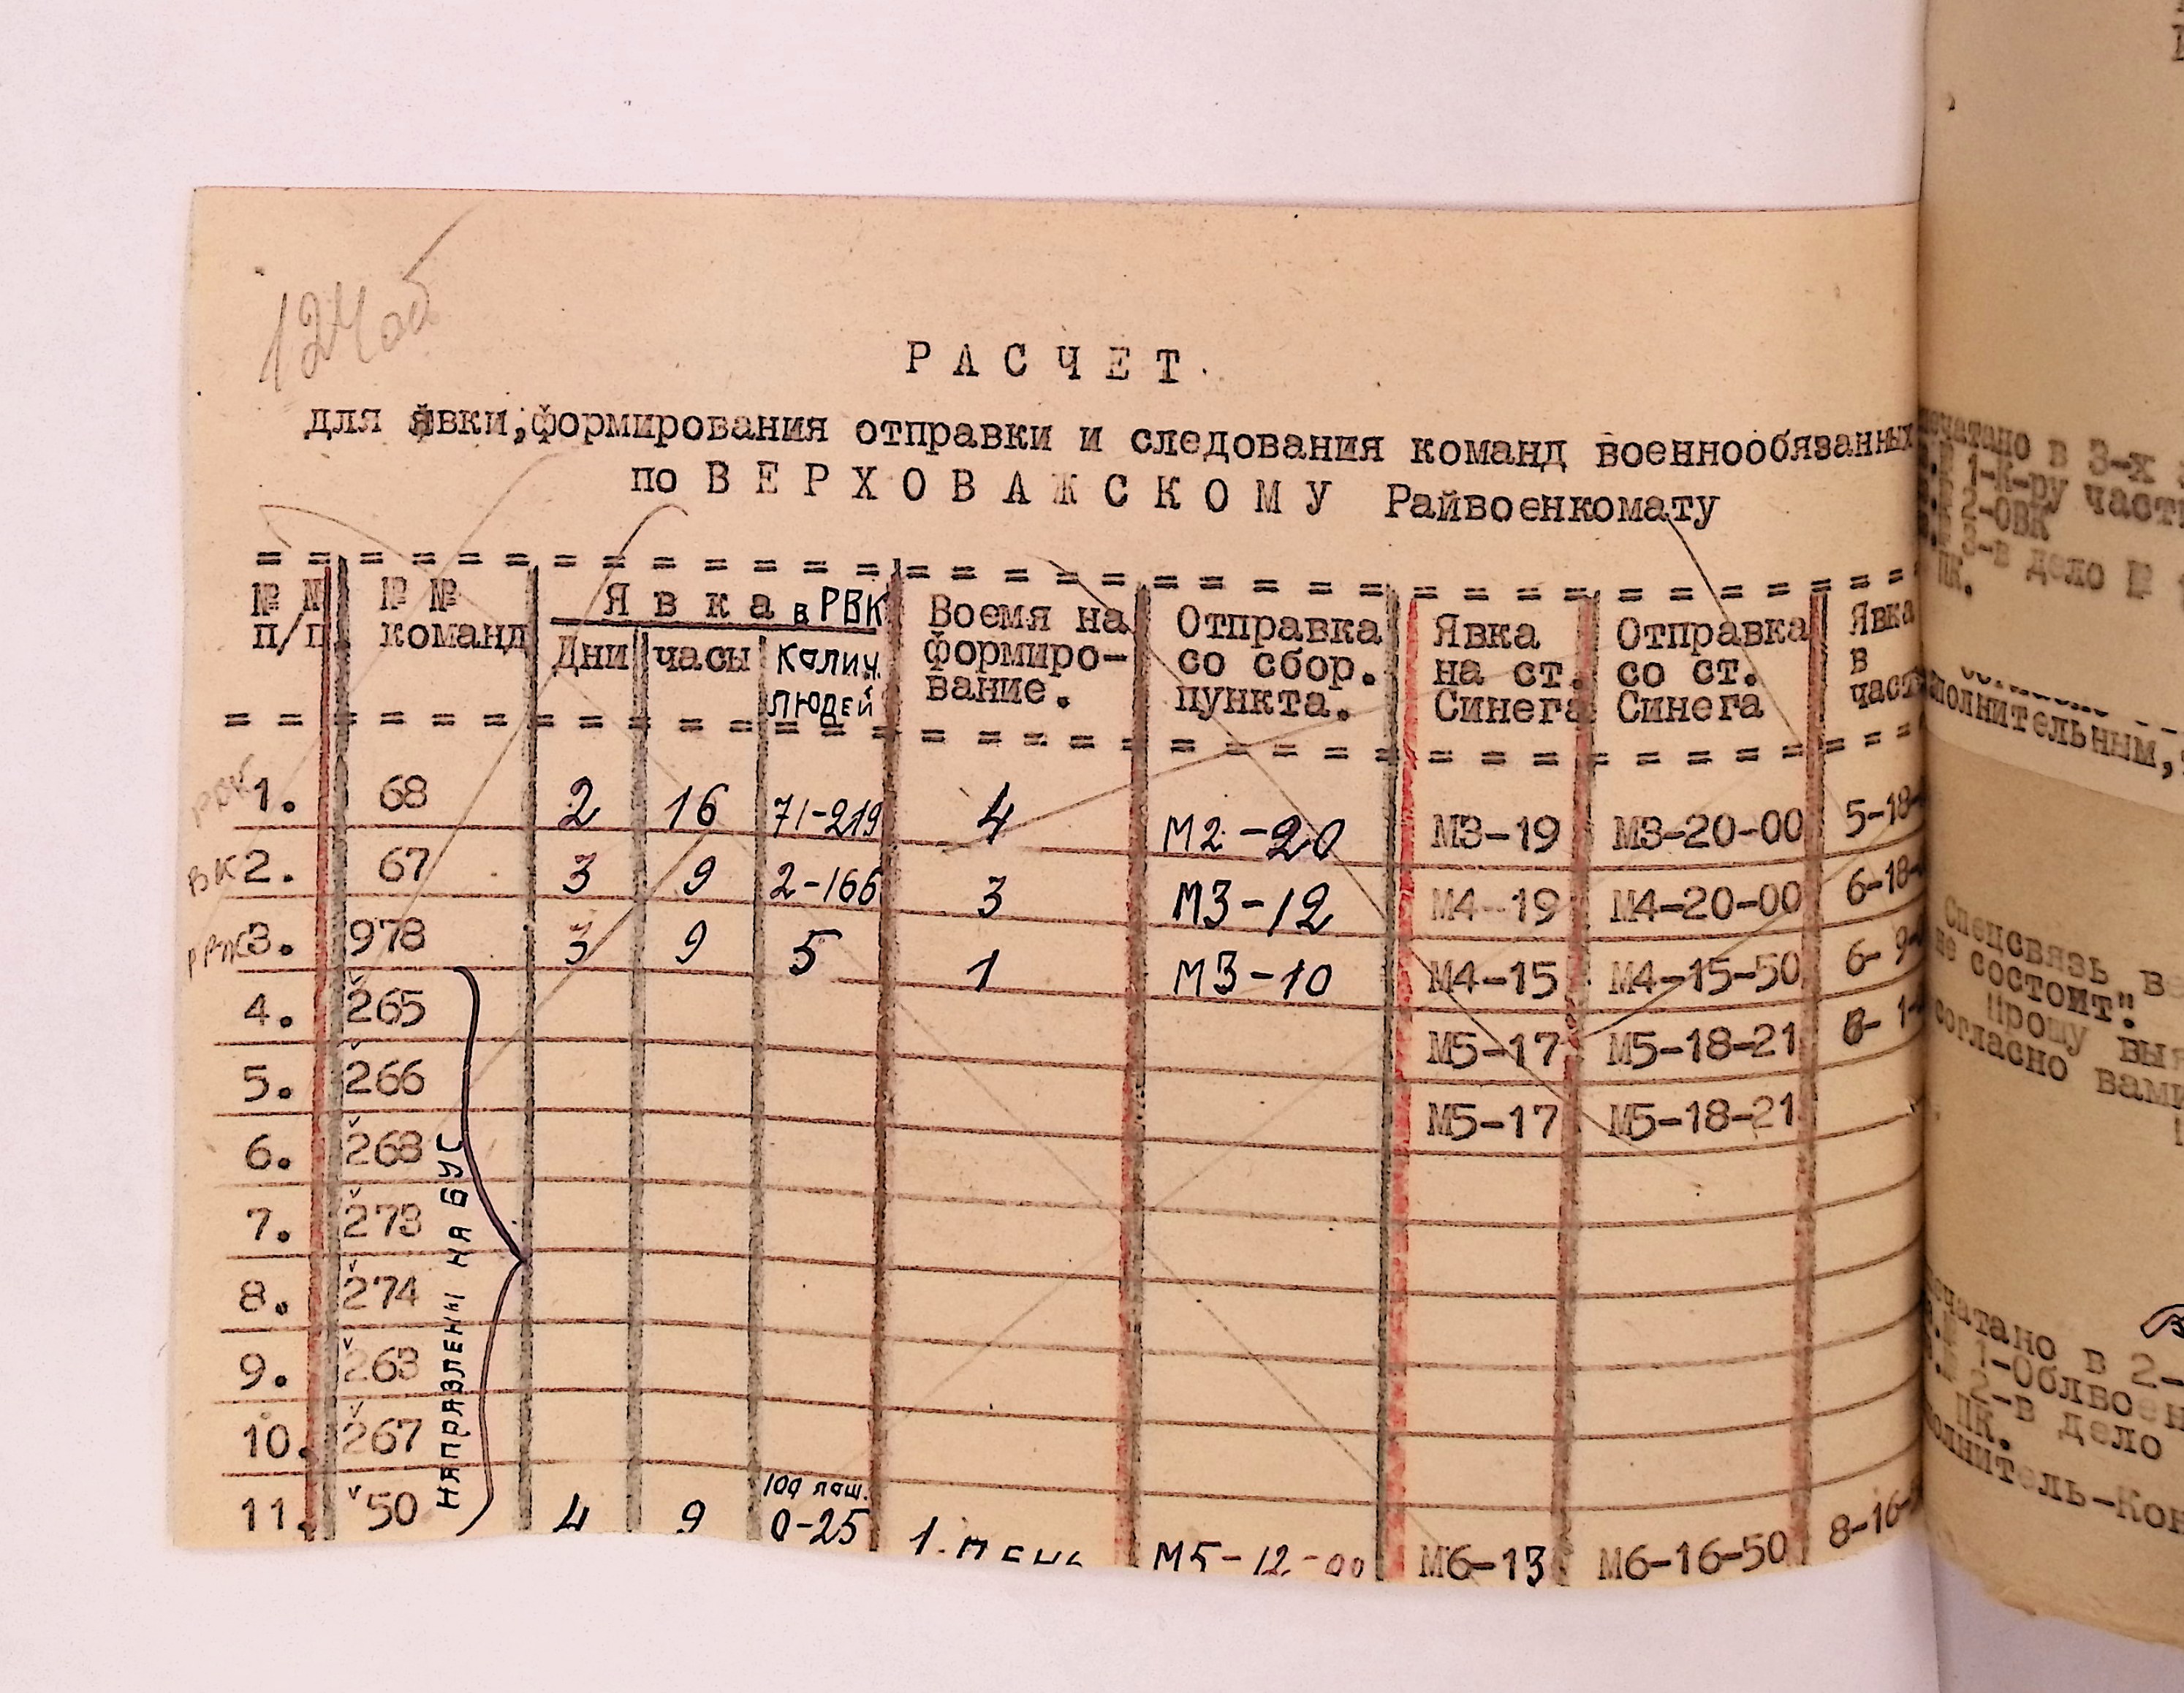 РАСЧЕТ.
для явки, формирования отправки и следования команд военнообязанных
по ВЕРХОВАЖСКОМУ Райвоенкомату
№ № п/п № № команд Явка в РВК Дни часы колич. людей Воемя на формиро-вание. Отправка со сбор. пункта. Явка на ст. Синега Отправка со ст. Синега Явка в част
1. 68 2 16 71-219 4 М2-20 М3-19 М3-20-00 5-18-
ВК 2. 67 3 9 2-166 3 М3-12 М4-19 М4-20-00 6-18-
3. 978 3 9 5 1 М3-10 М4-15 М4-15-50 6-9-
4. 265 М5-17 М5-18-21 8-1-
5. 266 М5-17 М5-18-21
6. 268
7. 273
8. 274
9. 263
10. 267
11. 50 4 9 100 лош. 0-25 1. день М5-12-00 М6-13 М6-16-50 8-16-
НАПРАВЛЕНЫ НА БУС
чатано в 3-х
1-К-ру част
2-ОВК
3-в дело №
ПК.
полнительным,
Спецсвязь в
не состоит".
Прошу вы
согласно вами
чатано в 2-
1-Облвоен
2-в дело
ПК.
олнитель-Кон